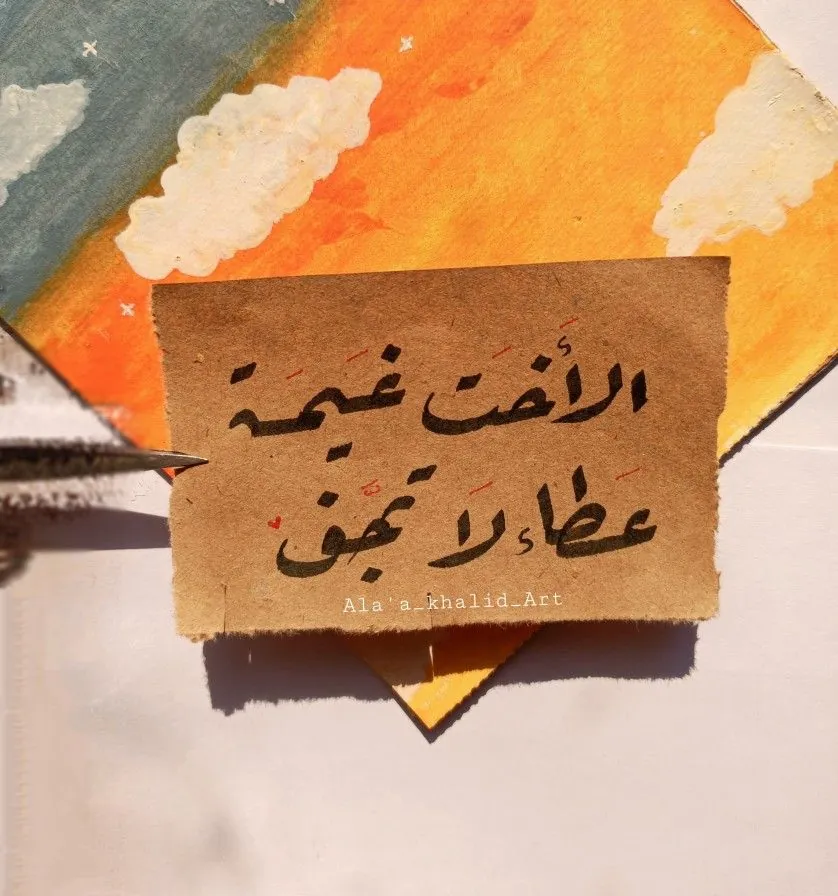 الأَخَت غَيمَة
عَطاء لَا تجَّف
Ala'a_khalid_Art